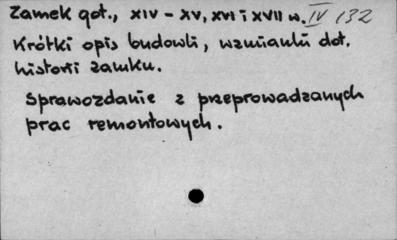 Zamek got., XIV – XV, XVI i XVII w. IV 132
Krótki opis budowli, wzmianki dot.
historii zamku.
Sprawozdanie z przeprowadzanych
prac remontowych.